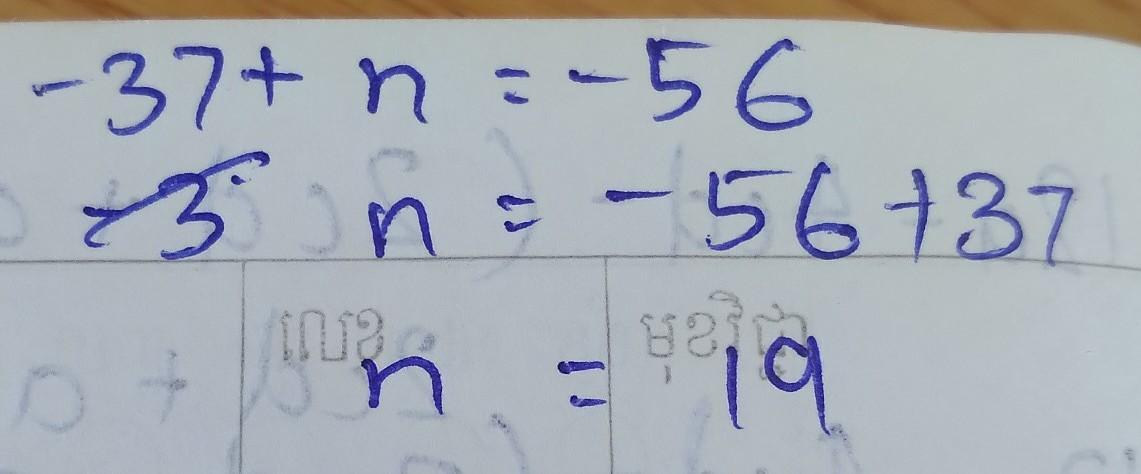 -37+ n = -56
n = -56+37
លេខ មុខវិជ្ជា
n = 19